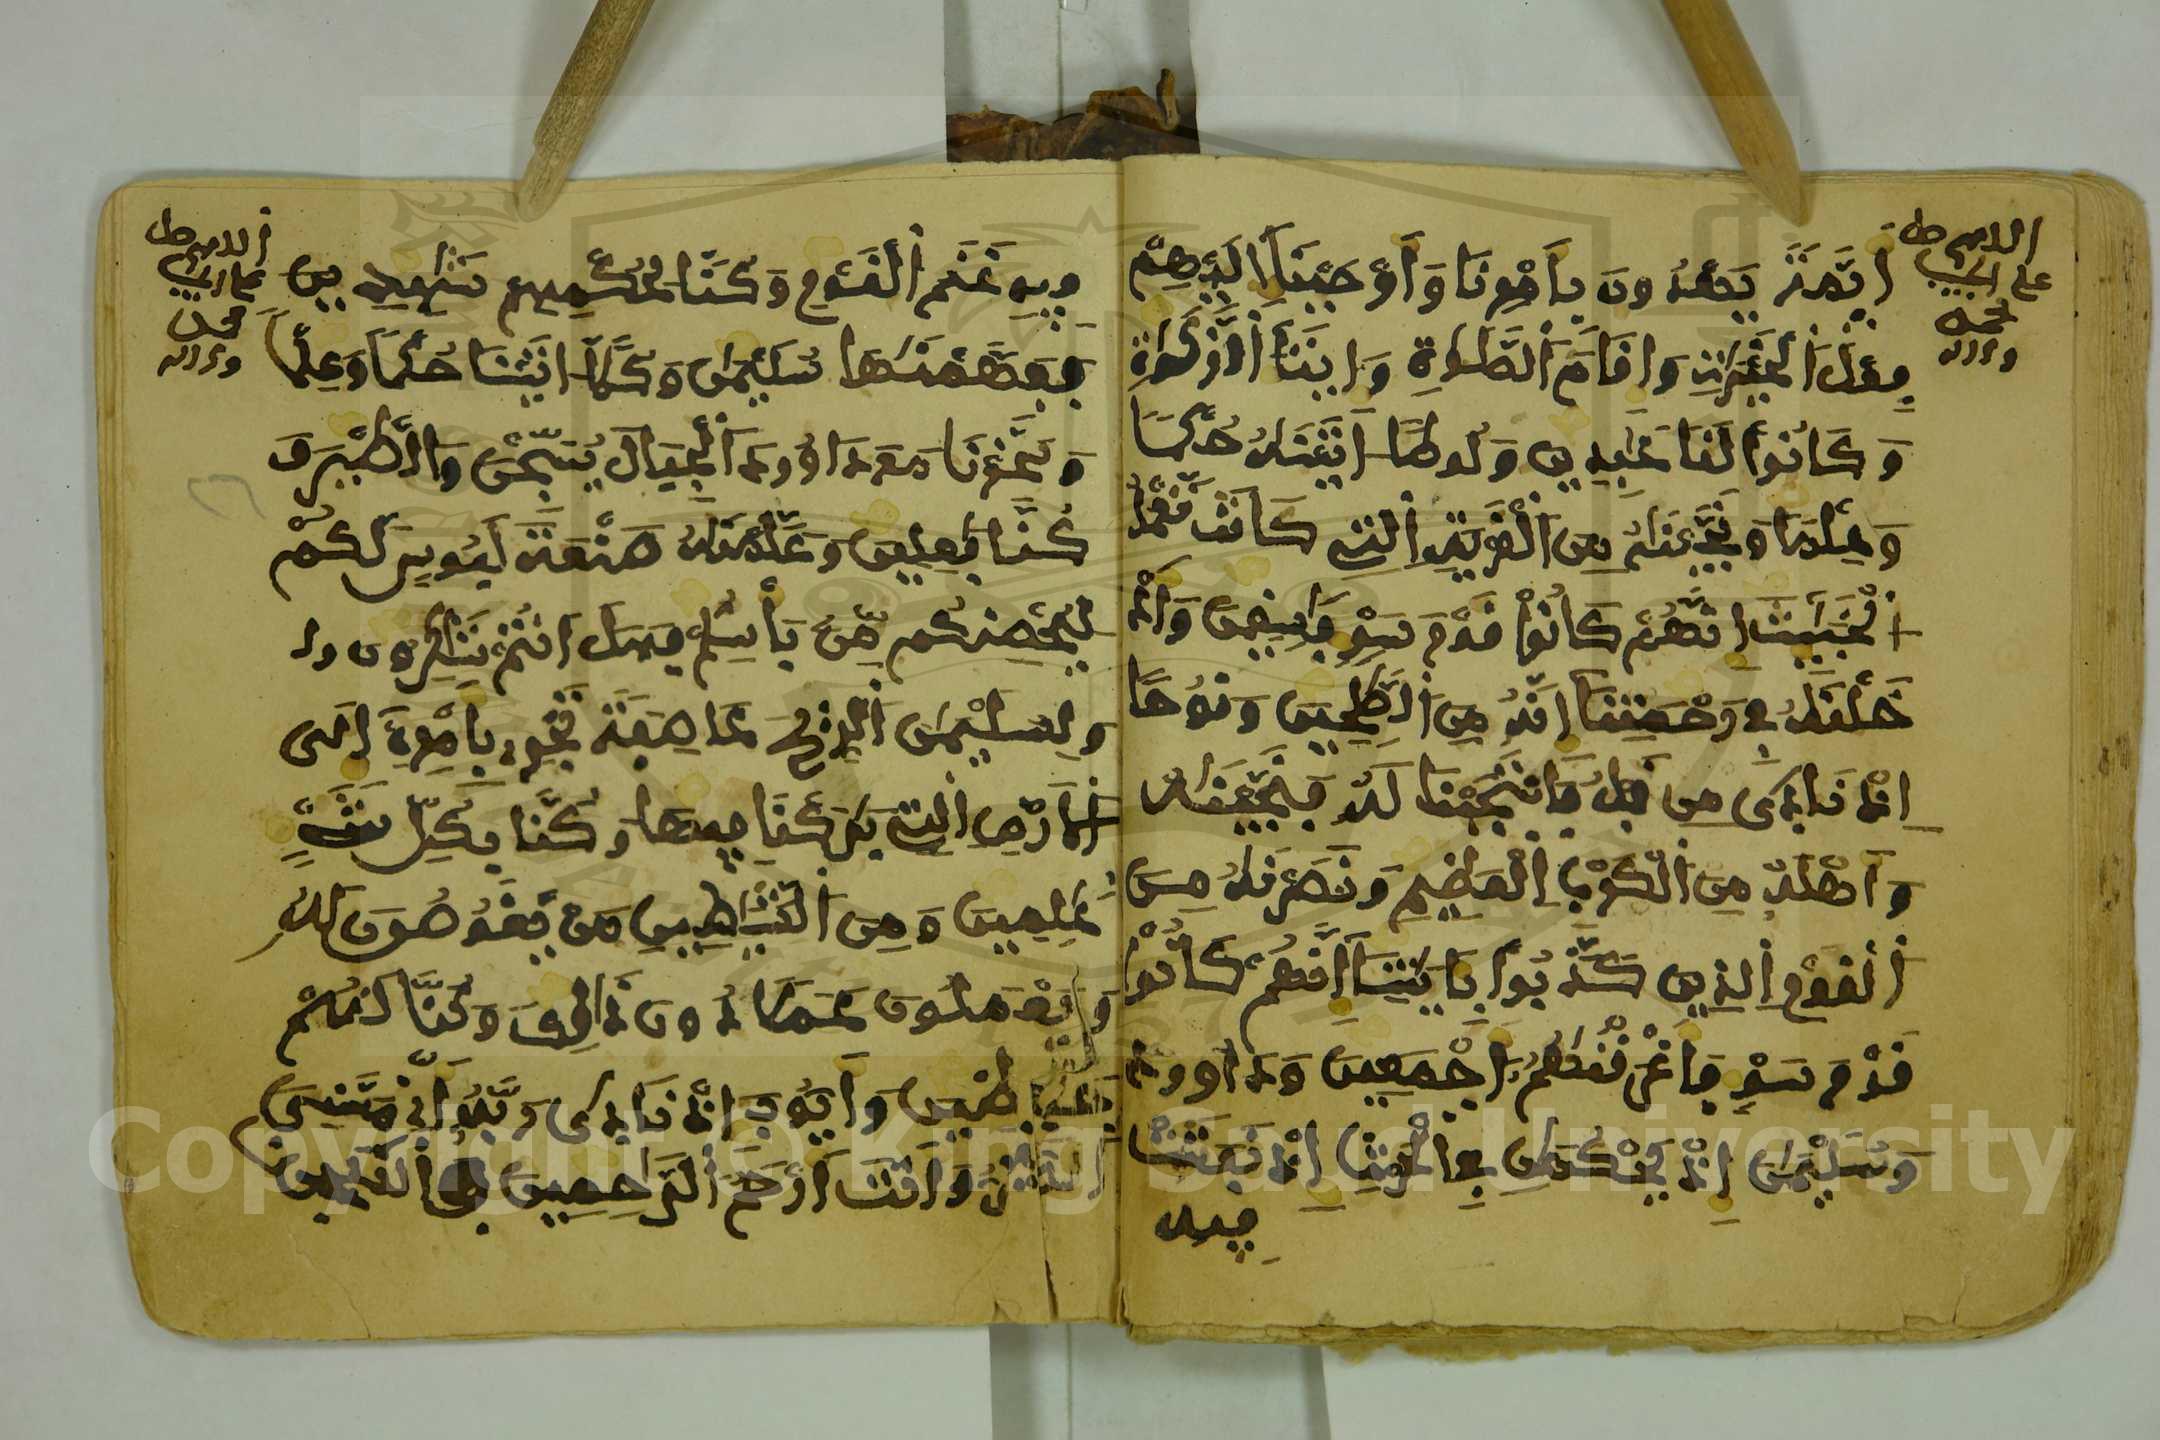 اللهم صل
على الحبيب
محمد
وءاله
أَيِمَّةً يَهْدُونَ بِأَمْرِنَا وَأَوْحَيْنَا إِلَيْهِمْ
فِعْلَ الْخَيْرَاتِ وَإِقَامَ الصَّلَوٰةِ وَإِيتَآءَ الزَّكَوٰةِ
وَكَانُوا لَنَا عَٰبِدِينَ وَلُوطًا ءَاتَيْنَٰهُ حُكْمًا
وَعِلْمًا وَنَجَّيْنَٰهُ مِنَ الْقَرْيَةِ الَّتِي كَانَت تَّعْمَلُ
الْخَبَٰئِثَ إِنَّهُمْ كَانُوا قَوْمَ سَوْءٍ فَٰسِقِينَ وَأَدْ
خَلْنَٰهُ فِي رَحْمَتِنَا إِنَّهُ مِنَ الصَّٰلِحِينَ وَنُوحًا
إِذْ نَادَىٰ مِن قَبْلُ فَاسْتَجَبْنَا لَهُ فَنَجَّيْنَٰهُ
وَأَهْلَهُ مِنَ الْكَرْبِ الْعَظِيمِ وَنَصَرْنَٰهُ مِنَ
الْقَوْمِ الَّذِينَ كَذَّبُوا بِـَٔايَٰتِنَا إِنَّهُمْ كَانُوا
قَوْمَ سَوْءٍ فَأَغْرَقْنَٰهُمْ أَجْمَعِينَ وَدَاوُودَ
وَسُلَيْمَٰنَ إِذْ يَحْكُمَٰنِ فِي الْحَرْثِ إِذْ نَفَشَتْ
فيه
اللهم صل
على الحبيب
محمد
وءاله
فِيهِ غَنَمُ الْقَوْمِ وَكُنَّا لِحُكْمِهِمْ شَٰهِدِينَ
فَفَهَّمْنَٰهَا سُلَيْمَٰنَ وَكُلًّا ءَاتَيْنَا حُكْمًا وَعِلْمًا
وَسَخَّرْنَا مَعَ دَاوُودَ الْجِبَالَ يُسَبِّحْنَ وَالطَّيْرَ وَ
كُنَّا فَٰعِلِينَ وَعَلَّمْنَٰهُ صَنْعَةَ لَبُوسٍ لَّكُمْ
لِيُحْصِنَكُم مِّن بَأْسِكُمْ فَهَلْ أَنتُمْ شَٰكِرُونَ
وَلِسُلَيْمَٰنَ الرِّيحَ عَاصِفَةً تَجْرِي بِأَمْرِهِ إِلَى
الْأَرْضِ الَّتِي بَٰرَكْنَا فِيهَا وَكُنَّا بِكُلِّ شَيْءٍ
عَٰلِمِينَ وَمِنَ الشَّيَٰطِينِ مَن يَغُوصُونَ لَهُ
وَيَعْمَلُونَ عَمَلًا دُونَ ذَٰلِكَ وَكُنَّا لَهُمْ
حَٰفِظِينَ وَأَيُّوبَ إِذْ نَادَىٰ رَبَّهُ أَنِّي مَسَّنِيَ
الضُّرُّ وَأَنتَ أَرْحَمُ الرَّٰحِمِينَ